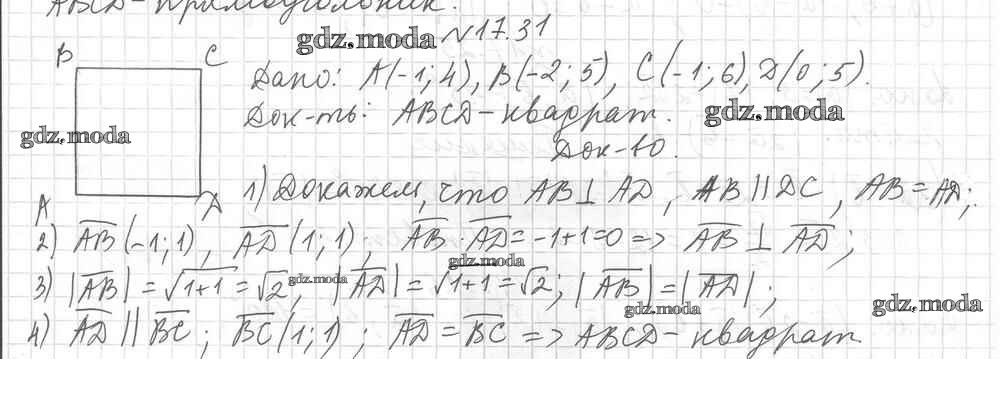 ABCD - прямоугольник.
gdz.moda №17.31
B C
Дано: A(-1;4), B(-2;5), C(-1;6), D(0;5).
Док-ть: ABCD - квадрат. gdz.moda
gdz.moda
Док-во.
A D
1) Докажем, что AB ⊥ AD, AB || DC, AB = AD;
2) \overline{AB}(-1;1), \overline{AD}(1;1); \overline{AB} · \overline{AD} = -1+1=0 => \overline{AB} ⊥ \overline{AD};
gdz.moda
3) |\overline{AB}| = √1+1 = √2, |\overline{AD}| = √1+1 = √2; |\overline{AB}| = |\overline{AD}|;
gdz.moda
gdz.moda gdz.moda
4) \overline{AD} || \overline{BC}; \overline{BC}(1;1); \overline{AD} = \overline{BC} => ABCD - квадрат.